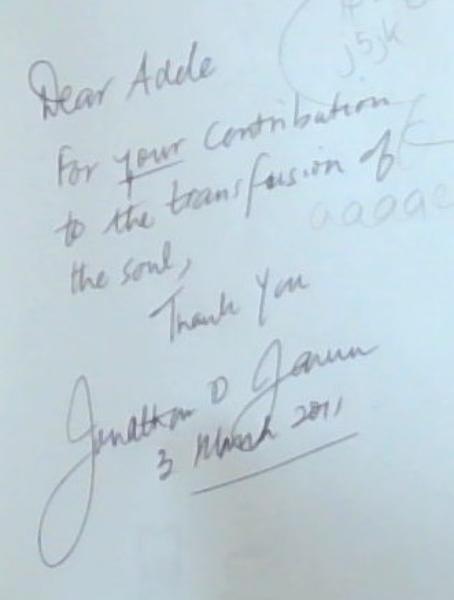 Dear Adele
For your contribution
to the transfusion of
the soul,
Thank you
Jonathan D
3 March 2011
j5jk
aaaae